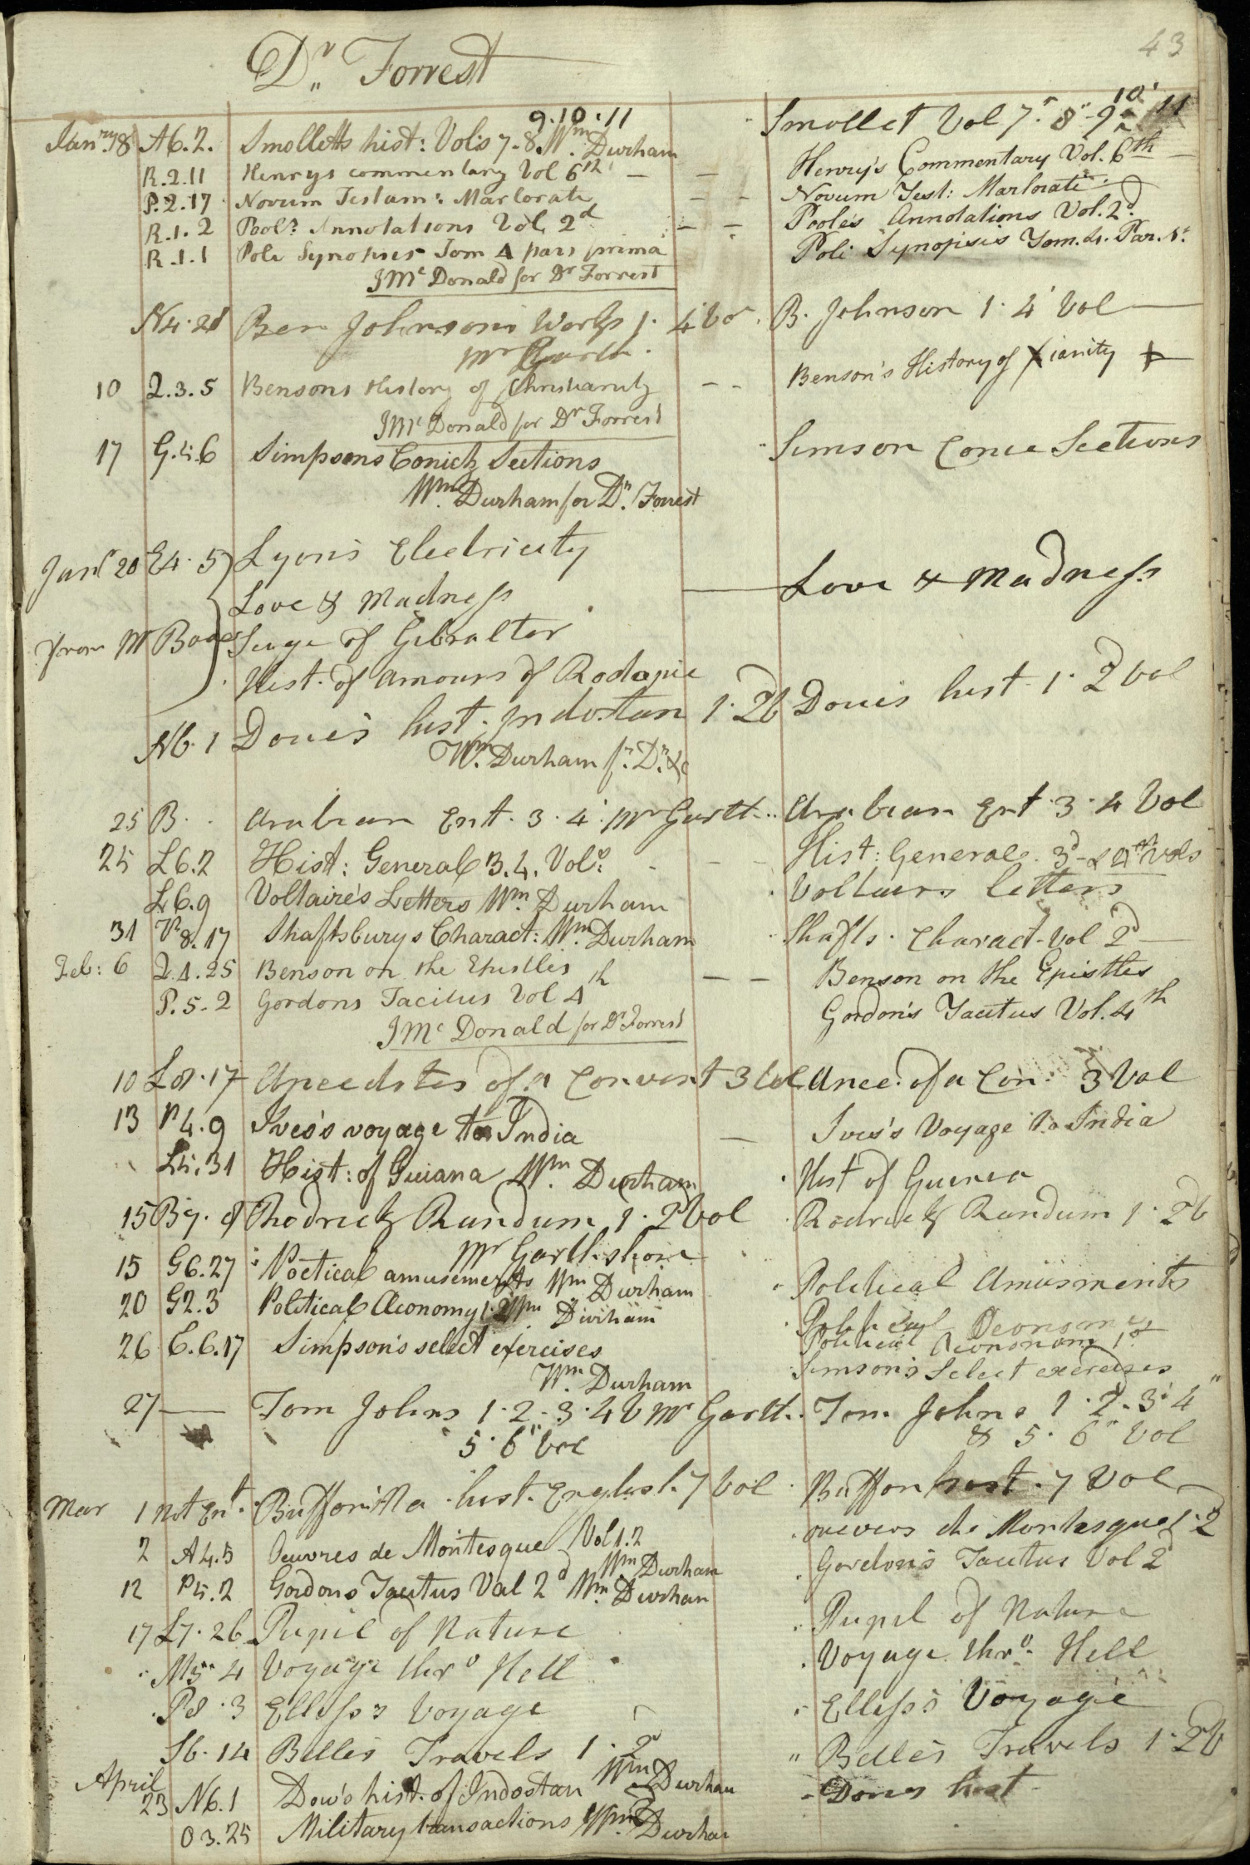 43
Dr. Forrest
9.10.11
Janry 8 A6.2. Smolletts hist: Vols 7.8. Wm. Durham Smollet Vol 7. 8. 9. 10 11
R.2.11 Henrys commentary Vol 6th — — Henry's Commentary Vol. 6th —
P.2.17 Novum Testam: Marlorate — — Novum Test: Marlorate
R.1.2 Pool's Annotations Vol, 2d — — Poole's Annotations Vol. 2d.
R.1.1 Poli Synopsis Tom 4 pars prima Poli Synopsis Tom. 4. Par. 1.
J Mc Donald for Dr Forrest
N4.28 Ben Johnsons Works 1. 4 Vol. B. Johnson 1. 4 Vol —
Mr Garth.
10 Q.3.5 Bensons History of Christianity — — Benson's History of Xianity +
J Mc Donald for Dr Forrest
17 G.5.6 Simpsons Conick Sections Simson Conic Sections
Wm. Durham for Dr. Forrest
Janr 20 E4.5 Lyons Electricity
Love & Madness — Love & Madness
from Mr Boogs Seige of Gibralter
Hist. of Amours of Rodopie
N6.1 Dows hist. Indostan 1. 2 V Dows hist. 1. 2 Vol
Wm. Durham fr. Dr. &c
25 B. Arabian Ent. 3. 4. Mr Garth. Arabian Ent. 3. 4 Vol
25 L6.2 Hist: General 3.4. Vols. — — Hist: General. 3d & 4th Vols
L6.9 Voltaire's Letters Wm. Durham Voltairs letters
31 V8.17 Shaftsburys Charact: Wm. Durham Shafts. Charact. Vol 2d —
Feb: 6 Q.4.25 Benson on the Epistles — — Benson on the Epistles
P.5.2 Gordons Tacitus Vol 4th Gordon's Tacitus Vol. 4th
J Mc Donald for Dr Forrest
10 L8.17 Anecdotes of a Convent 3 Vol Anec. of a Con. 3 Vol
13 P4.9 Ives's voyage to India — Ives's Voyage to India
L5.31 Hist: of Guiana Wm. Durham Hist of Guinea
15 B7.8 Rhodrick Randum 1. 2 Vol Rodrick Randum 1. 2 V
Mr Garthshore
15 G6.27 Poetical amusements Wm Durham Political Amusments
20 G2.3 Political Œconomy 1. Wm Durham Political Oeconomy 1st
26 E.6.17 Simpson's select exercises Simson's Select exercises
Wm. Durham
27 — Tom Johns 1. 2. 3. 4 V Mr Garth. Tom Johns 1. 2. 3. 4
5. 6 Vol & 5. 6 Vol
Mar 1 Not Ent. Buffon's Na. hist. English. 7 Vol Buffon hist. 7 Vol
2 A4.5 Oeuvres de Montesque Vol 1.2 oeuvers de Montesque 1. 2
Wm Durham
12 P5.2 Gordons Tacitus Vol 2d Wm. Durham Gordon's Tacitus Vol 2d
17 L7.26 Pupil of Nature Pupil of Nature
M5.4 Voyage thro Hell Voyage thro. Hell
P8.3 Elless's Voyage Elless's Voyage
S6.14 Belles Travels 1. 2d Belles Travels 1. 2 V
April
23 N6.1 Dow's hist. of Indostan Wm Durham Dows hist
O3.25 Military transactions Wm Durham